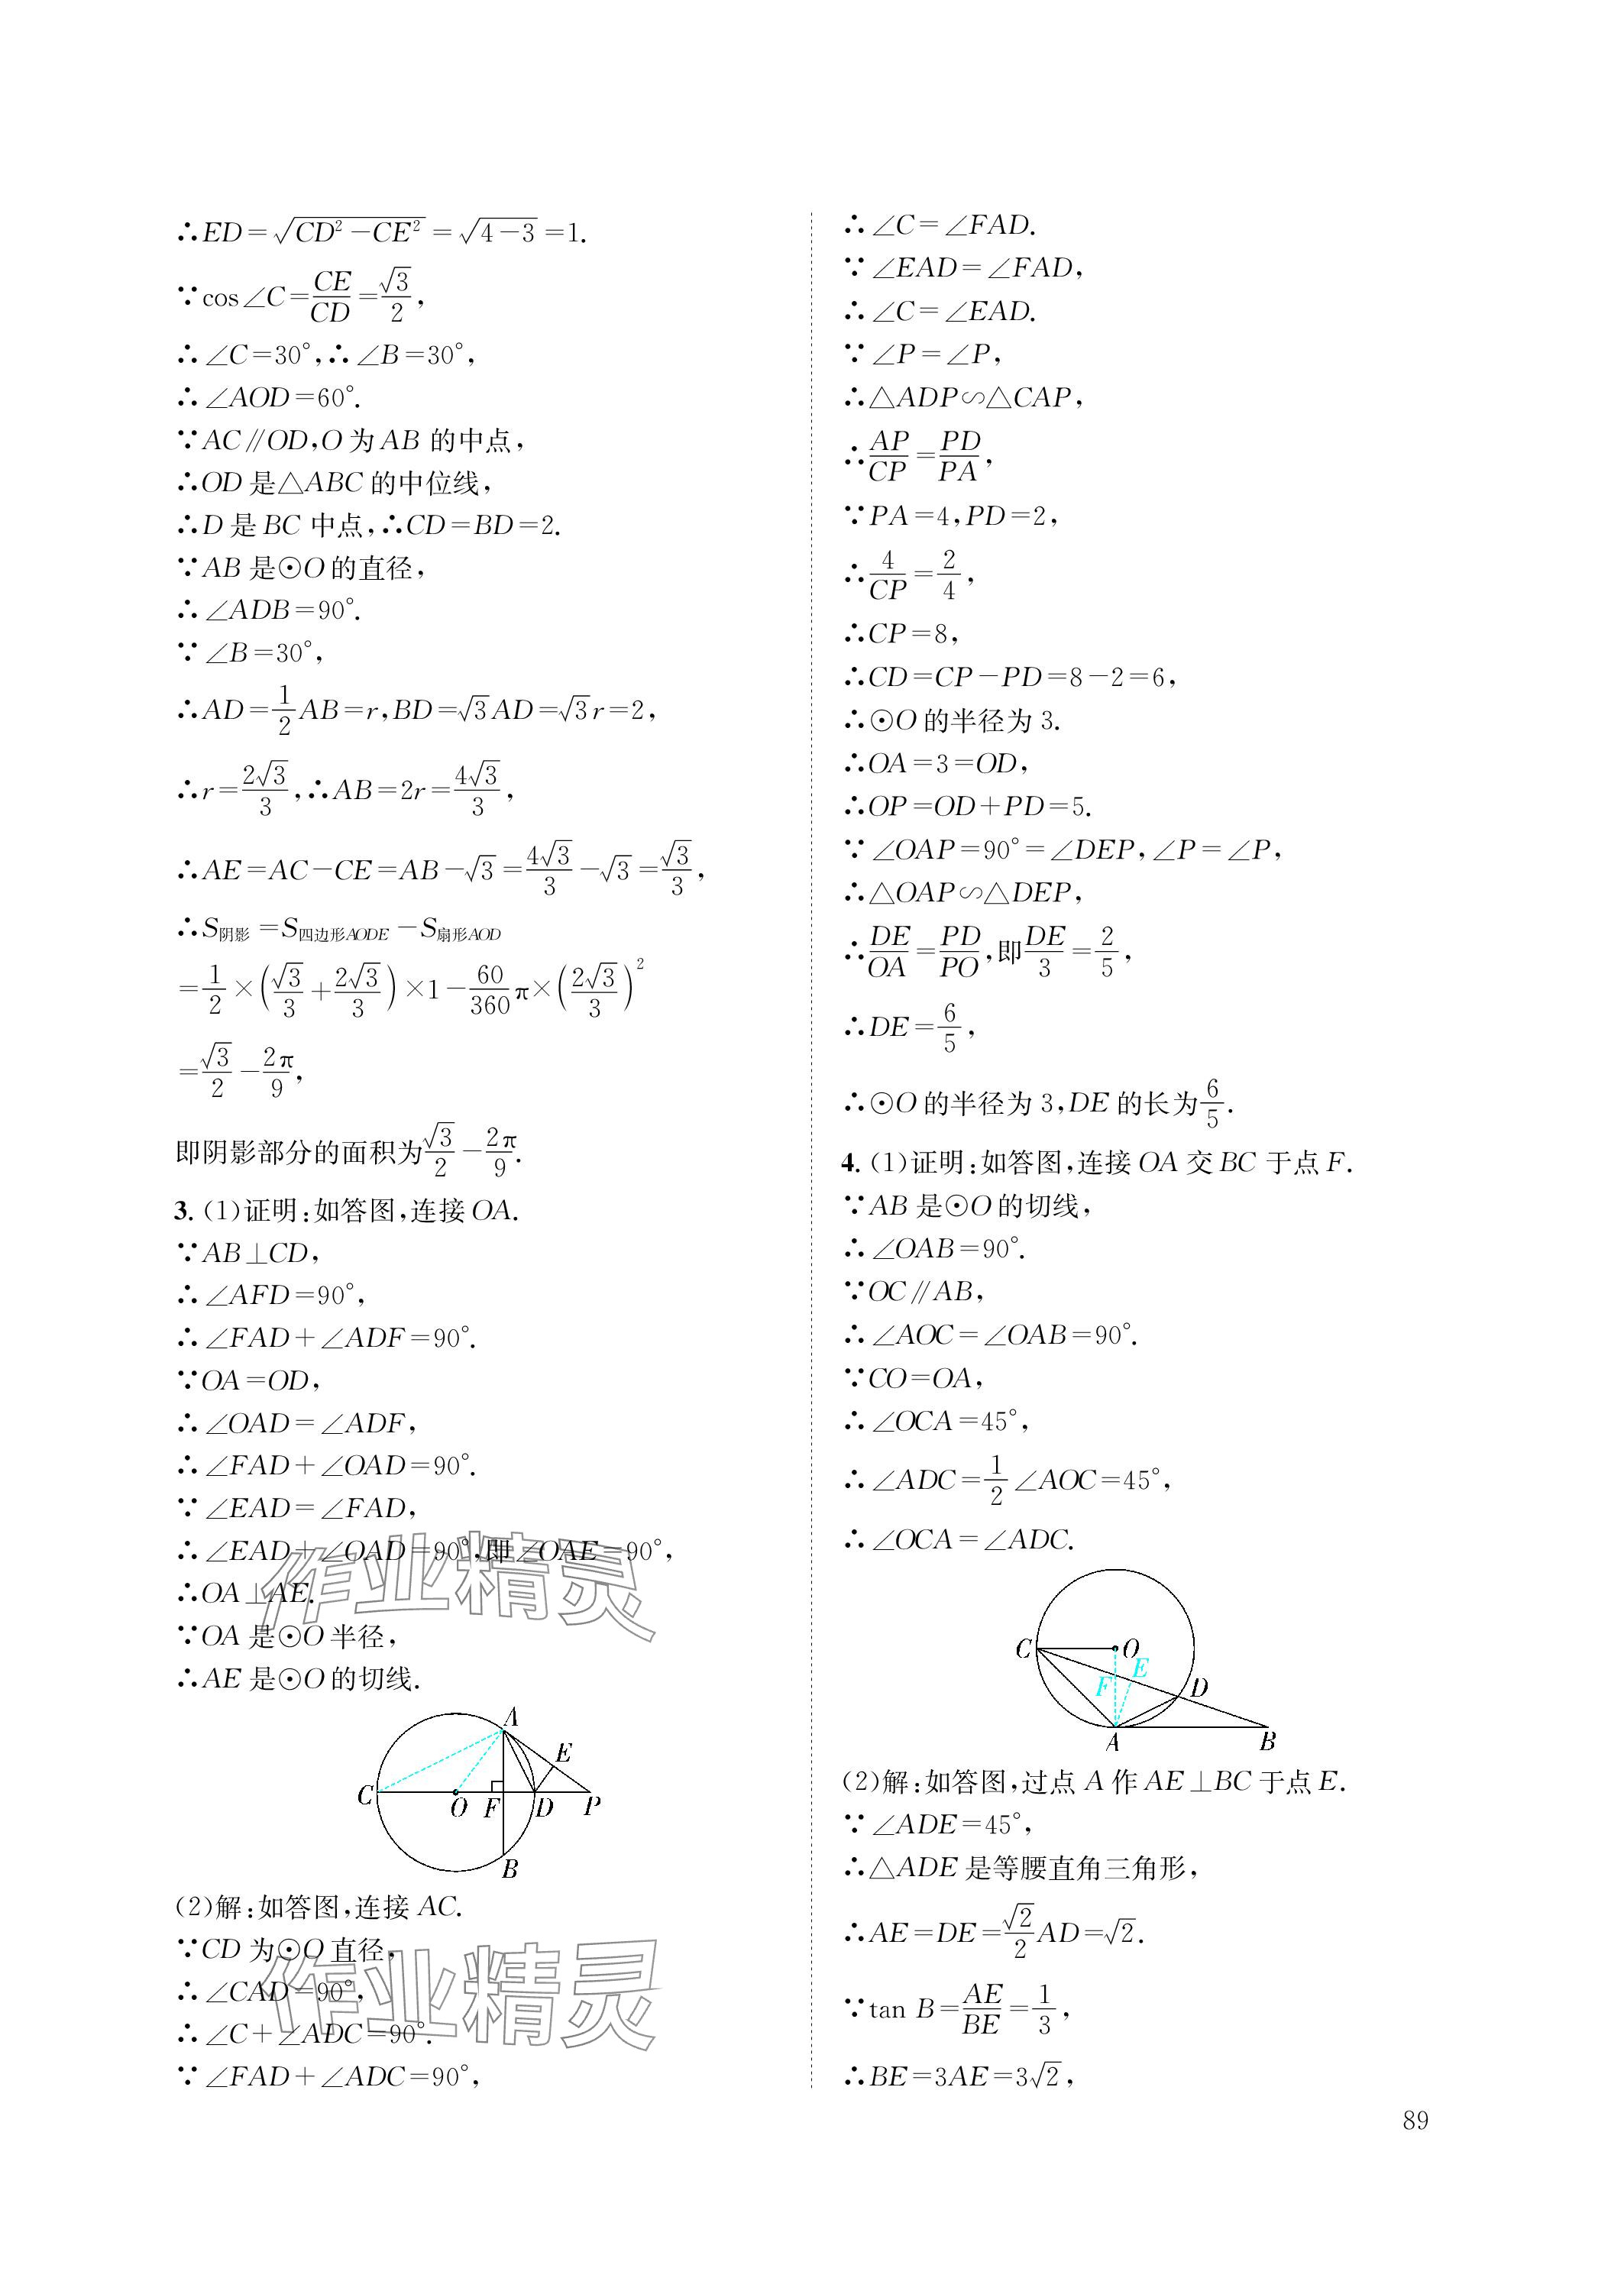 ∴ED=√(CD²−CE²)=√(4−3)=1.
∵cos∠C=CE/CD=√3/2,
∴∠C=30°,∴∠B=30°,
∴∠AOD=60°.
∵AC∥OD,O为AB的中点,
∴OD是△ABC的中位线,
∴D是BC中点,∴CD=BD=2.
∵AB是⊙O的直径,
∴∠ADB=90°.
∵∠B=30°,
∴AD=1/2AB=r,BD=√3AD=√3r=2,
∴r=2√3/3,∴AB=2r=4√3/3,
∴AE=AC−CE=AB−√3=4√3/3−√3=√3/3,
∴S阴影=S四边形AODE−S扇形AOD
=1/2×(√3/3+2√3/3)×1−60/360π×(2√3/3)²
=√3/2−2π/9,
即阴影部分的面积为√3/2−2π/9.
3.(1)证明:如答图,连接OA.
∵AB⊥CD,
∴∠AFD=90°,
∴∠FAD+∠ADF=90°.
∵OA=OD,
∴∠OAD=∠ADF,
∴∠FAD+∠OAD=90°.
∵∠EAD=∠FAD,
∴∠EAD+∠OAD=90°,即∠OAE=90°,
∴OA⊥AE.
∵OA是⊙O半径,
∴AE是⊙O的切线.
作业精灵
A
E
C
O
F
D
P
B
(2)解:如答图,连接AC.
∵CD为⊙O直径,
∴∠CAD=90°,
∴∠C+∠ADC=90°.
∵∠FAD+∠ADC=90°,
作业精灵
∴∠C=∠FAD.
∵∠EAD=∠FAD,
∴∠C=∠EAD.
∵∠P=∠P,
∴△ADP∽△CAP,
∴AP/CP=PD/PA,
∵PA=4,PD=2,
∴4/CP=2/4,
∴CP=8,
∴CD=CP−PD=8−2=6,
∴⊙O的半径为3.
∴OA=3=OD,
∴OP=OD+PD=5.
∵∠OAP=90°=∠DEP,∠P=∠P,
∴△OAP∽△DEP,
∴DE/OA=PD/PO,即DE/3=2/5,
∴DE=6/5,
∴⊙O的半径为3,DE的长为6/5.
4.(1)证明:如答图,连接OA交BC于点F.
∵AB是⊙O的切线,
∴∠OAB=90°.
∵OC∥AB,
∴∠AOC=∠OAB=90°.
∵CO=OA,
∴∠OCA=45°,
∴∠ADC=1/2∠AOC=45°,
∴∠OCA=∠ADC.
C
O
E
F
D
A
B
(2)解:如答图,过点A作AE⊥BC于点E.
∵∠ADE=45°,
∴△ADE是等腰直角三角形,
∴AE=DE=√2/2AD=√2.
∵tan B=AE/BE=1/3,
∴BE=3AE=3√2,
89